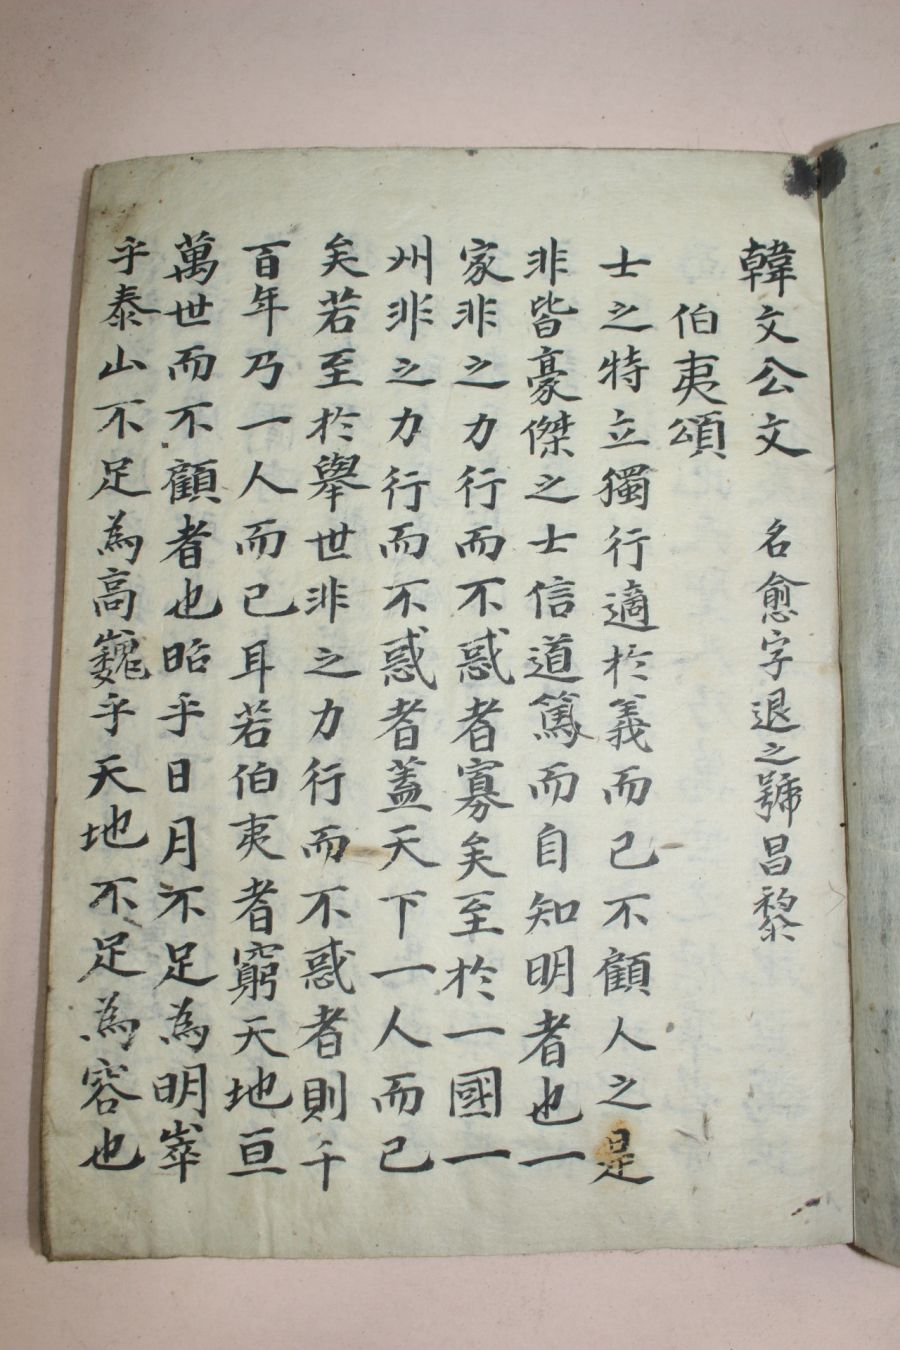 韓文公文 名愈字退之號昌黎
伯夷頌
士之特立獨行適於義而已不顧人之是
非皆豪傑之士信道篤而自知明者也一
家非之力行而不惑者寡矣至於一國一
州非之力行而不惑者蓋天下一人而已
矣若至於舉世非之力行而不惑者則千
百年乃一人而已耳若伯夷者窮天地亘
萬世而不顧者也昭乎日月不足為明崒
乎泰山不足為高巍乎天地不足為容也